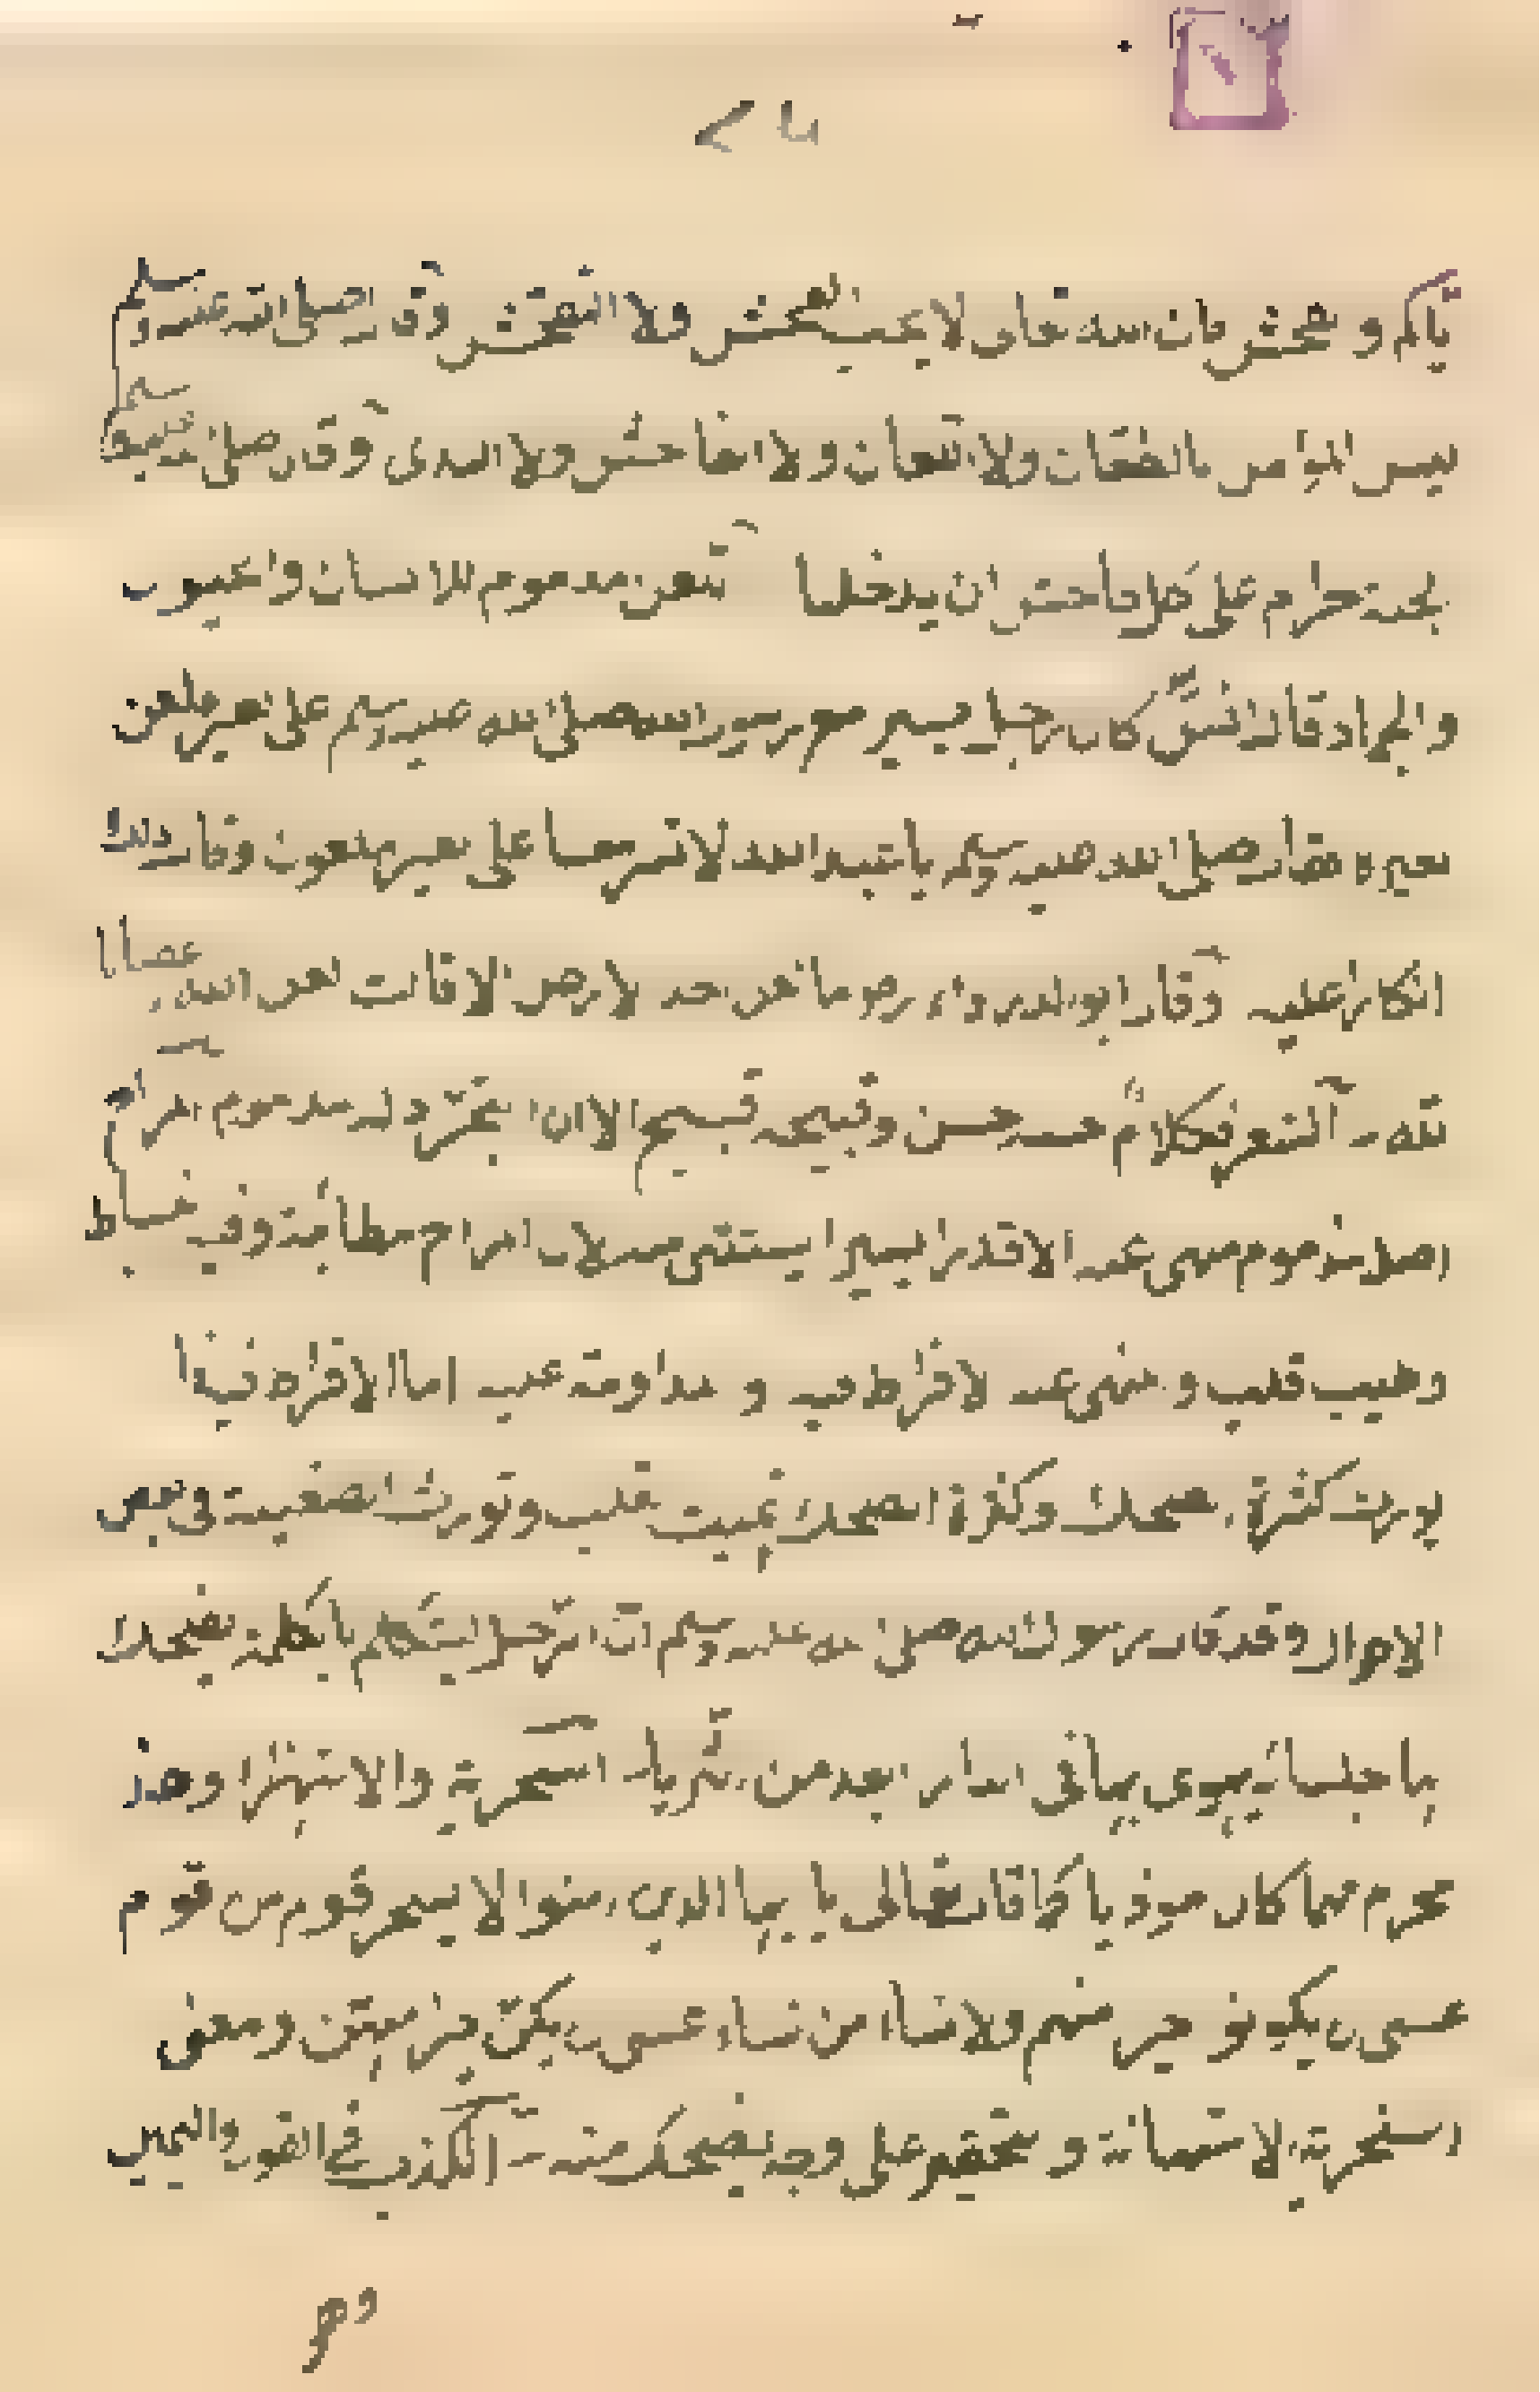 اياكم والفحش فان الله تعالى لا يحب الفحش ولا التفحش وقال صلى الله عليه وسلم
ليس المؤمن بالطعان ولا اللعان ولا الفاحش ولا البذي وقال صلى الله عليه وسلم
الجنة حرام على كل فاحش ان يدخلها اللعن مذموم للانسان والحيوان
والجماد قال انس كان رجل يسير مع رسول الله صلى الله عليه وسلم على بعير فلعن
بعيره فقال صلى الله عليه وسلم يا عبد الله لا تسر معنا على بعير ملعون وقال ذلك
انكارا عليه وقال ابو الدرداء رضي ما لعن احد الارض الا قالت لعن الله اعصانا
لله الشعر فكلام حسنه حسن وقبيحه قبيح الا ان التجرد له مذموم المزاح
اصله مذموم منهي عنه الا قدرا يسيرا يستثنى منه لان المزاح مطايبة وفيه انبساط
وطيب قلب والمنهي عنه الافراط فيه والمداومة عليه اما الافراط فيه فانه
يورث كثرة الضحك وكثرة الضحك تميت القلب وتورث الضغينة في بعض
الاحوال وقد قال رسول الله صلى الله عليه وسلم ان الرجل ليتكلم بالكلمة يضحك
بها جلساءه يهوي بها في النار ابعد من الثريا السخرية والاستهزاء وهذا
محرم مهما كان موذيا كما قال تعالى يا ايها الذين امنوا لا يسخر قوم من قوم
عسى ان يكونوا خيرا منهم ولا نساء من نساء عسى ان يكن خيرا منهن ومعنى
السخرية الاستهانة والتحقير على وجه يضحك منه الكذب في القول واليمين
وهو